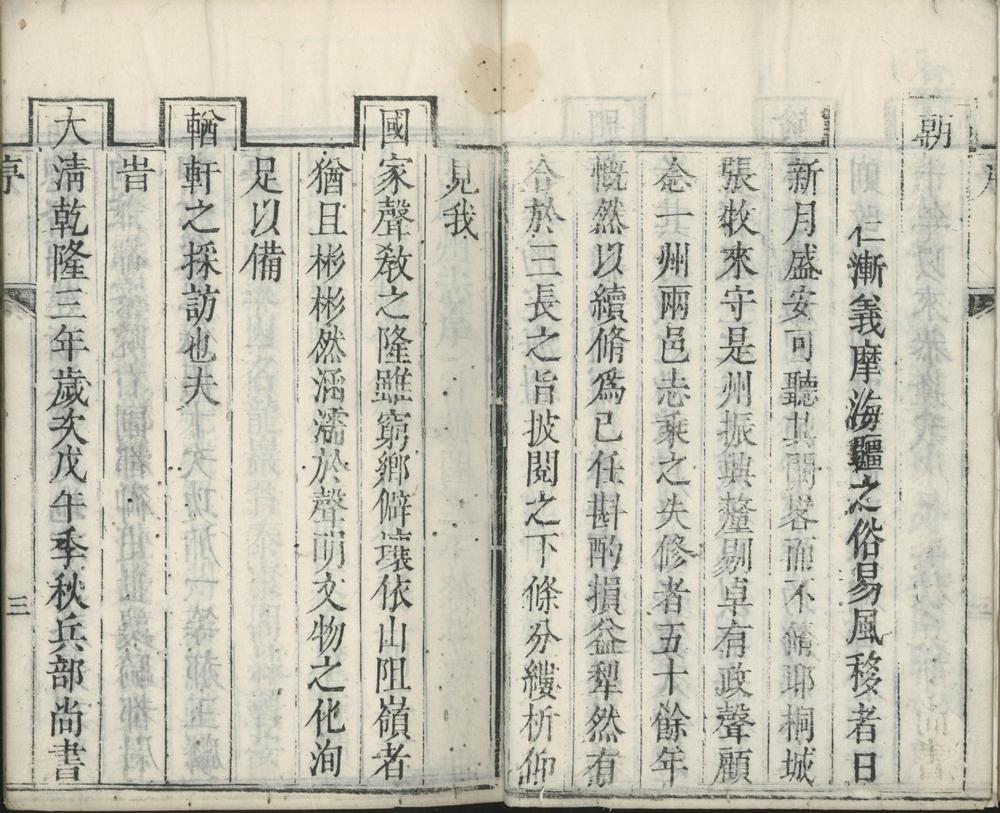 朝
仁漸義摩海疆之俗易風移者日
新月盛安可聽其闕畧而不脩耶桐城
張牧來守是州振興釐剔卓有政聲顧
念一州兩邑志乘之失修者五十餘年
慨然以續脩爲已任斟酌損益犂然有
合於三長之旨披閱之下條分縷析仰
見我
國家聲敎之隆雖窮鄉僻壤依山阻嶺者
猶且彬彬然涵濡於聲明文物之化洵
足以備
輶軒之採訪也夫
旹
大淸乾隆三年歲次戊午季秋兵部尚書
序
三